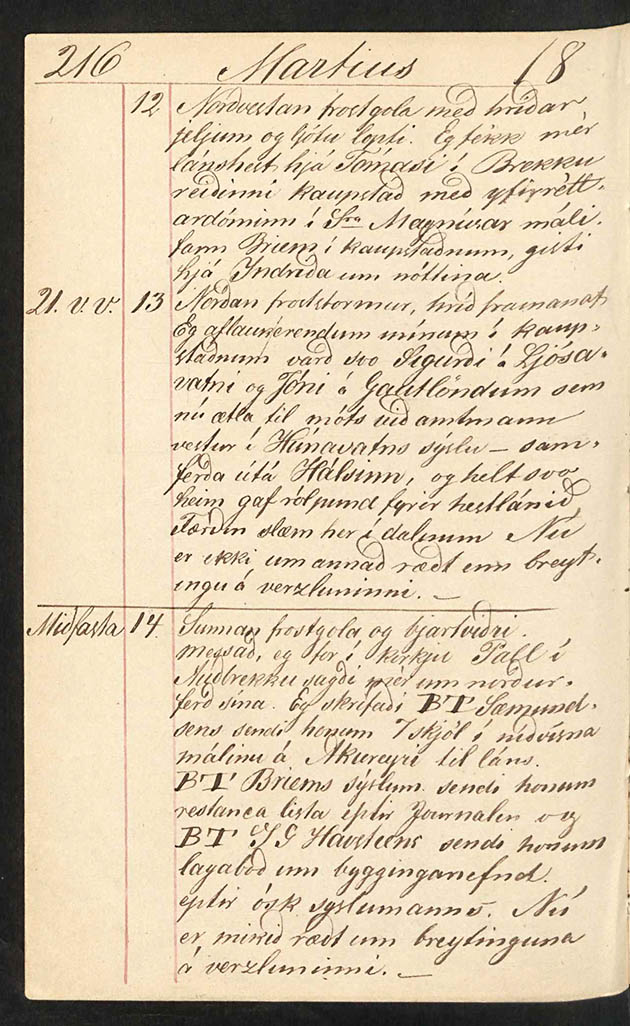 216 Martius 18
12 Nordvestan frostgola með hríðar
jeljum og ljótu lopti. Eg fékk mér
lánshest hjá Tómasi í Brekku
reið inní kaupstað með yfirrétt-
ardóminn í Sra Magnúsar máli.
fann Briem í kaupstaðnum, gisti
hjá Indriða um nóttina.
21. v. v. 13 Norðan froststormur, hríð framanaf
Eg aflauk erendum mínum í kaup-
staðnum varð svo Sigurði á Ljósa-
vatni og Jóni á Gautlöndum sem
nú ætla til móts við amtmann
vestur í Húnavatns sýslu – sam-
ferða útá Hálsinn, og helt svo
heim gaf rólpund fyrir hestlánið
Færðin slæm her í dalnum Nú
er ekki um annað rædt enn breyt-
ingu á verzluninni. –
Miðfasta 14. Sunnan frostgola og bjartviðri.
messað, eg fór í kirkju Páll í
Nýubrekku sagði mér um norður-
ferð sína. Eg skrifaði BT Sæmund-
sens sendi honum 7 skjöl í níðvísna
málinu á Akureyri til láns.
BT Briems sýslum. sendi honum
restanca lista eptir Journalen og
BT JG Havsteens sendi honum
lagaboð um bygginganefnd.
eptir ósk syslumanns. Nú
er mikið rædt um breytinguna
á verzluninni. –